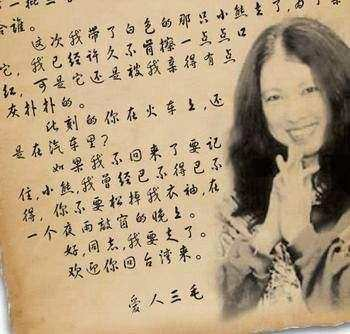 一批三。
会谁。
这次我带了白色的那只小熊去了，为了亲
它，我已经许久不肯擦一点点口
红，可是它还是被我亲得有点
灰扑扑的。
此刻的你在火车上，还
是在汽车里？
如果我不回来了，要记
住，小熊，我曾经巴不得巴不
得，你不要松掉我衣袖，在
一个夜雨敲窗的晚上。
好，同志，我要走了。
欢迎你回台湾来。
爱人三毛